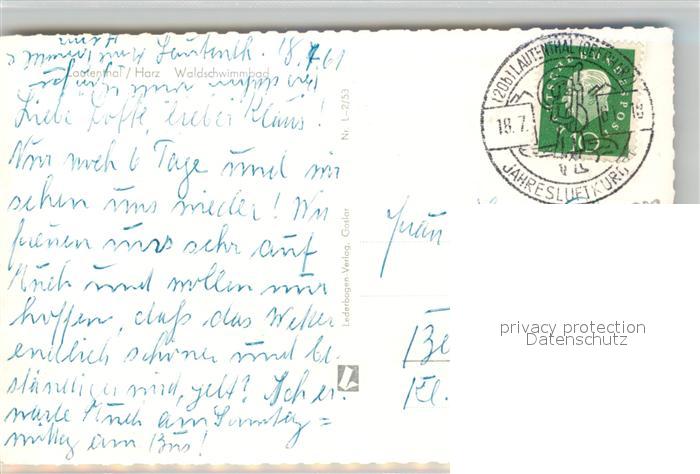 Lautenth. 18.7.61
Lautenthal / Harz Waldschwimmbad
Liebe Lotte, lieber Klaus!
Nur noch 6 Tage und wir
sehen uns wieder! Wir
freuen uns sehr auf
Euch und wollen nur
hoffen, daß das Wetter
endlich schöner und be-
ständiger wird, gelt? Ich er-
warte Euch am Sonntag =
mittag am Bus!
Nr. L-2/53
Lederbogen-Verlag, Goslar
(20b) LAUTENTHAL
18.7.
JAHRESLUFTKURO
DEUTSCHE BUNDESPOST
10
Frau
Be
Kl.
privacy protection
Datenschutz